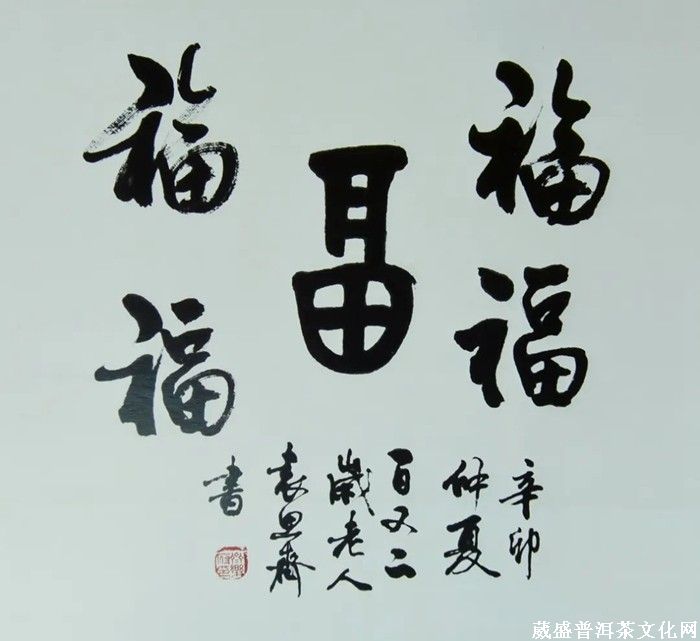 福
福
畐
福
福
辛卯
仲夏
百又二
歲老人
袁思齊
書
葳盛普洱茶文化网